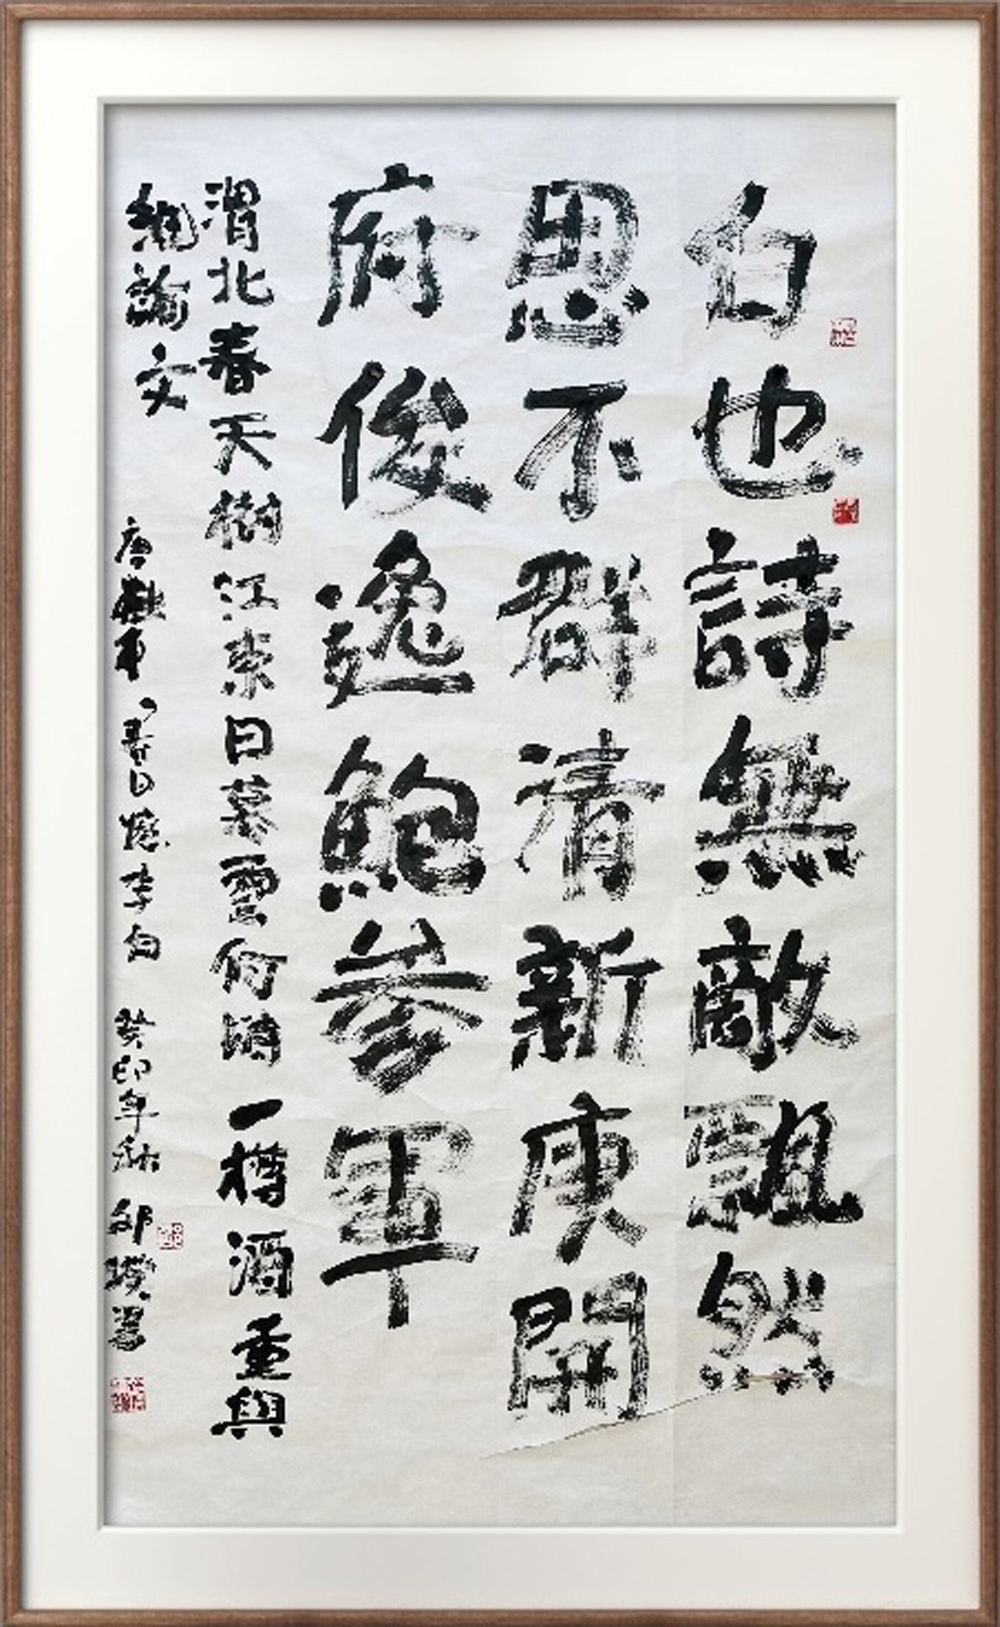 白也詩無敵飄然
思不群清新庾開
府俊逸鮑參軍
渭北春天樹江東日暮雲何時一樽酒重與
細論文
唐杜甫春日憶李白 癸卯年秋